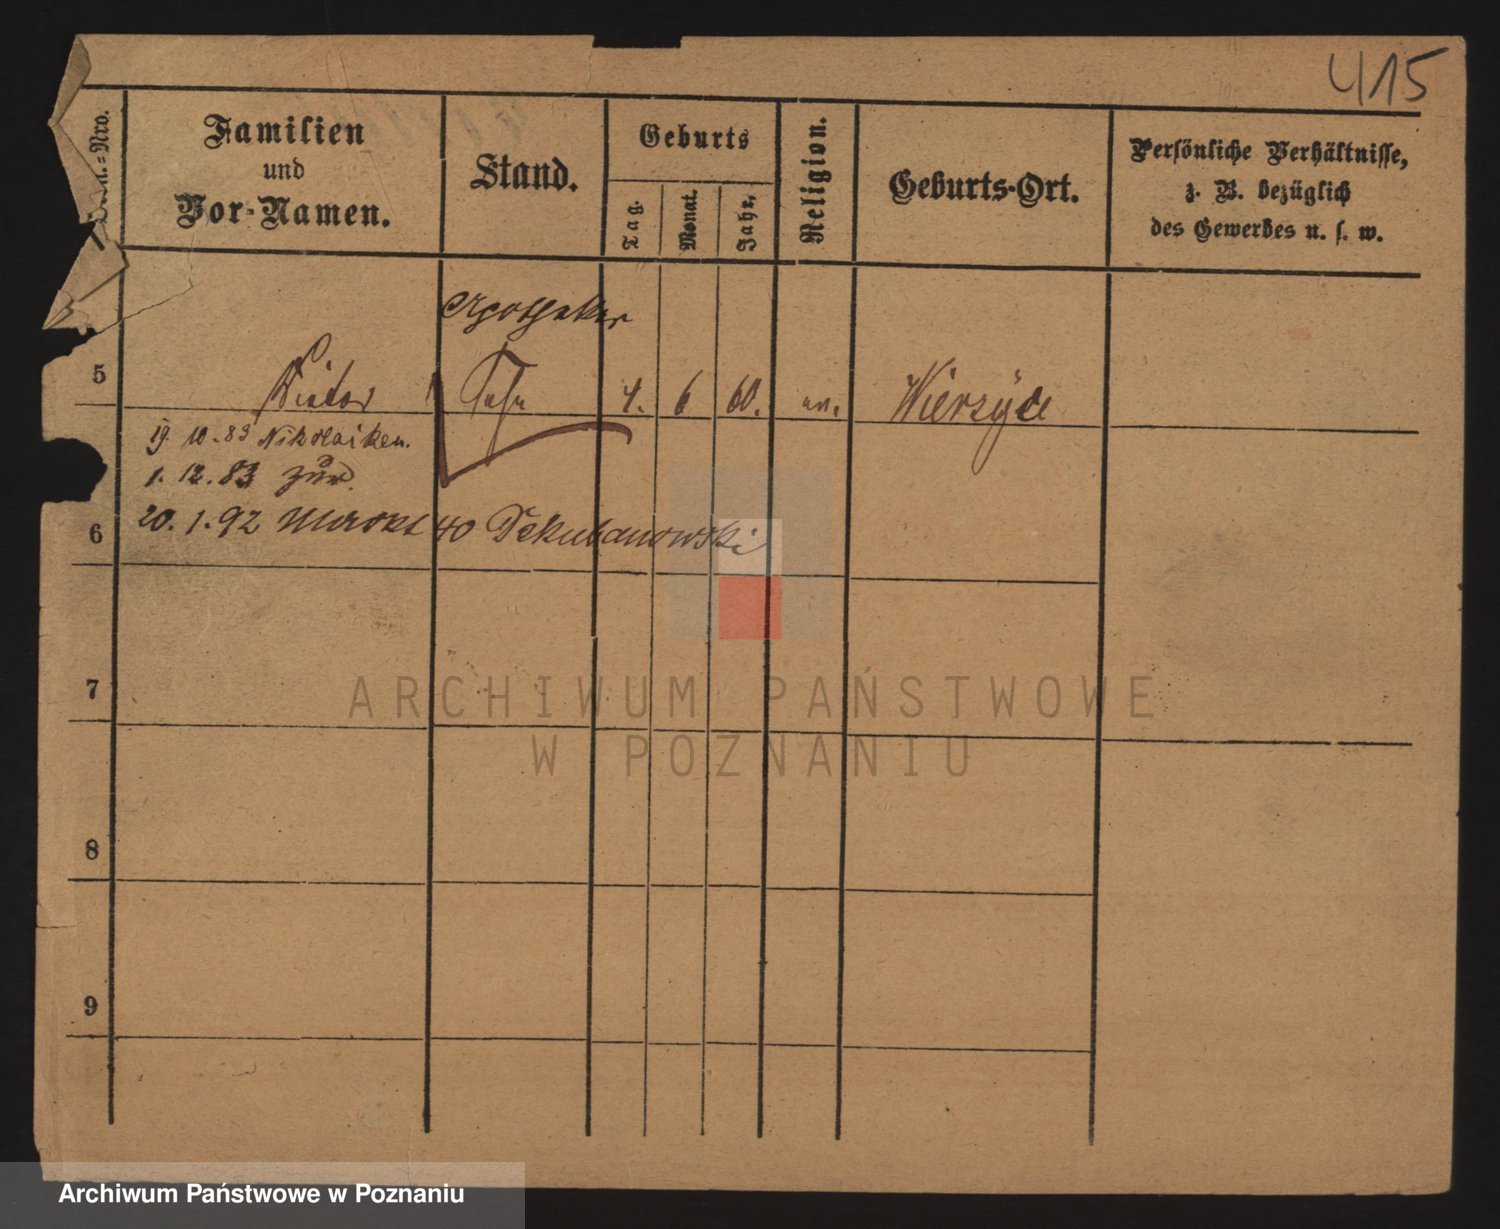 415
Familien
und
Vor-Namen.
Stand.
Geburts
Tag.
Monat.
Jahr.
Religion.
Geburts-Ort.
Persönliche Verhältnisse,
z. B. bezüglich
des Gewerbes u. s. w.
Apotheker
5 Victor Sohn 4. 6 60. ev. Wierzyce
19. 10. 83 Nikolaiken.
1. 12. 83 zur.
6 20. 1. 92 Markt 40
7
8
9
ARCHIWUM PAŃSTWOWE
W POZNANIU
Archiwum Państwowe w Poznaniu